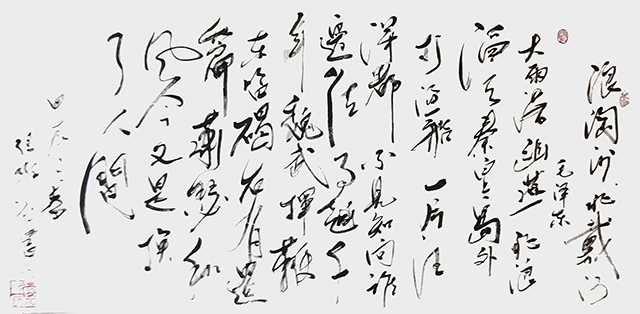 浪淘沙北戴河
毛泽东
大雨落幽燕白浪
滔天秦皇岛外
打渔船一片汪
洋都不见知向谁
边往事越千
年魏武挥鞭
东临碣石有遗
篇萧瑟秋
风今又是换
了人间
甲辰之春
书